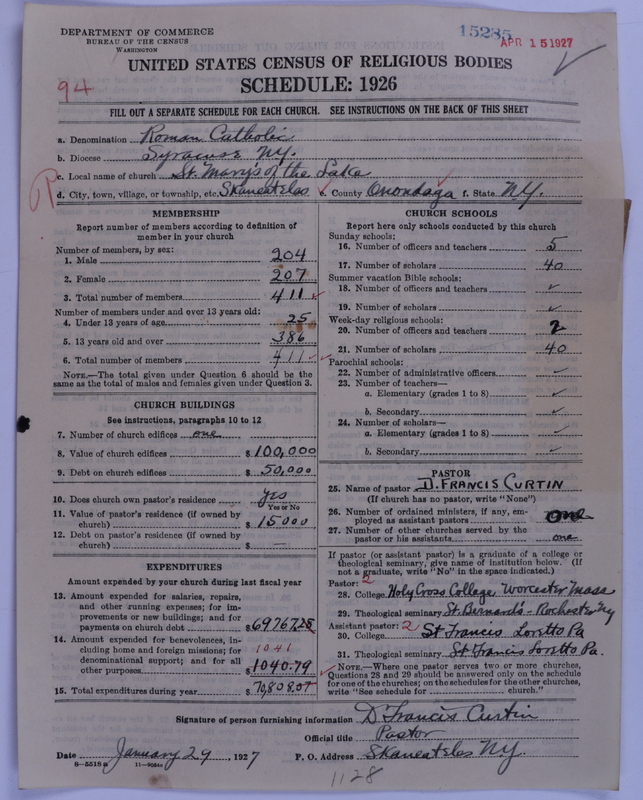 DEPARTMENT OF COMMERCE
BUREAU OF THE CENSUS
WASHINGTON
15285
APR 15 1927
94
UNITED STATES CENSUS OF RELIGIOUS BODIES
SCHEDULE: 1926
FILL OUT A SEPARATE SCHEDULE FOR EACH CHURCH. SEE INSTRUCTIONS ON THE BACK OF THIS SHEET
a. Denomination Roman Catholic
b. Diocese Syracuse N.Y.
c. Local name of church St. Mary's of the Lake
d. City, town, village, or township, etc. Skaneateles e. County Onondaga f. State N.Y.
MEMBERSHIP
Report number of members according to definition of
member in your church
Number of members, by sex:
1. Male 204
2. Female 207
3. Total number of members 411
Number of members under and over 13 years old:
4. Under 13 years of age 25
5. 13 years old and over 386
6. Total number of members 411
NOTE.—The total given under Question 6 should be the
same as the total of males and females given under Question 3.
CHURCH BUILDINGS
See instructions, paragraphs 10 to 12
7. Number of church edifices one
8. Value of church edifices $100,000
9. Debt on church edifices $50,000
10. Does church own pastor's residence yes
Yes or No
11. Value of pastor's residence (if owned by
church) $15000
12. Debt on pastor's residence (if owned by
church) $ —
EXPENDITURES
Amount expended by your church during last fiscal year
13. Amount expended for salaries, repairs,
and other running expenses; for im-
provements or new buildings; and for
payments on church debt $69767.25
14. Amount expended for benevolences, in-
cluding home and foreign missions; for 1041
denominational support; and for all
other purposes $1040.79
15. Total expenditures during year $70,808.07
CHURCH SCHOOLS
Report here only schools conducted by this church
Sunday schools:
16. Number of officers and teachers 5
17. Number of scholars 40
Summer vacation Bible schools:
18. Number of officers and teachers
19. Number of scholars
Week-day religious schools:
20. Number of officers and teachers 2
21. Number of scholars 40
Parochial schools:
22. Number of administrative officers
23. Number of teachers—
a. Elementary (grades 1 to 8)
b. Secondary
24. Number of scholars—
a. Elementary (grades 1 to 8)
b. Secondary
PASTOR
25. Name of pastor D. FRANCIS CURTIN
(If church has no pastor, write "None")
26. Number of ordained ministers, if any, em-
ployed as assistant pastors one
27. Number of other churches served by the
pastor or his assistants one
If pastor (or assistant pastor) is a graduate of a college or
theological seminary, give name of institution below. (If
not a graduate, write "No" in the space indicated.)
Pastor: 2
28. College Holy Cross College Worcester Mass
29. Theological seminary St. Bernard's - Rochester Ny
Assistant pastor: 2
30. College St Francis Loretto Pa
31. Theological seminary St. Francis Loretto Pa.
NOTE.—Where one pastor serves two or more churches,
Questions 28 and 29 should be answered only on the schedule
for one of the churches; on the schedules for the other churches,
write "See schedule for church."
Signature of person furnishing information D. Francis Curtin
Official title Pastor
Date January 29, 1927 P. O. Address Skaneateles N.Y.
1128